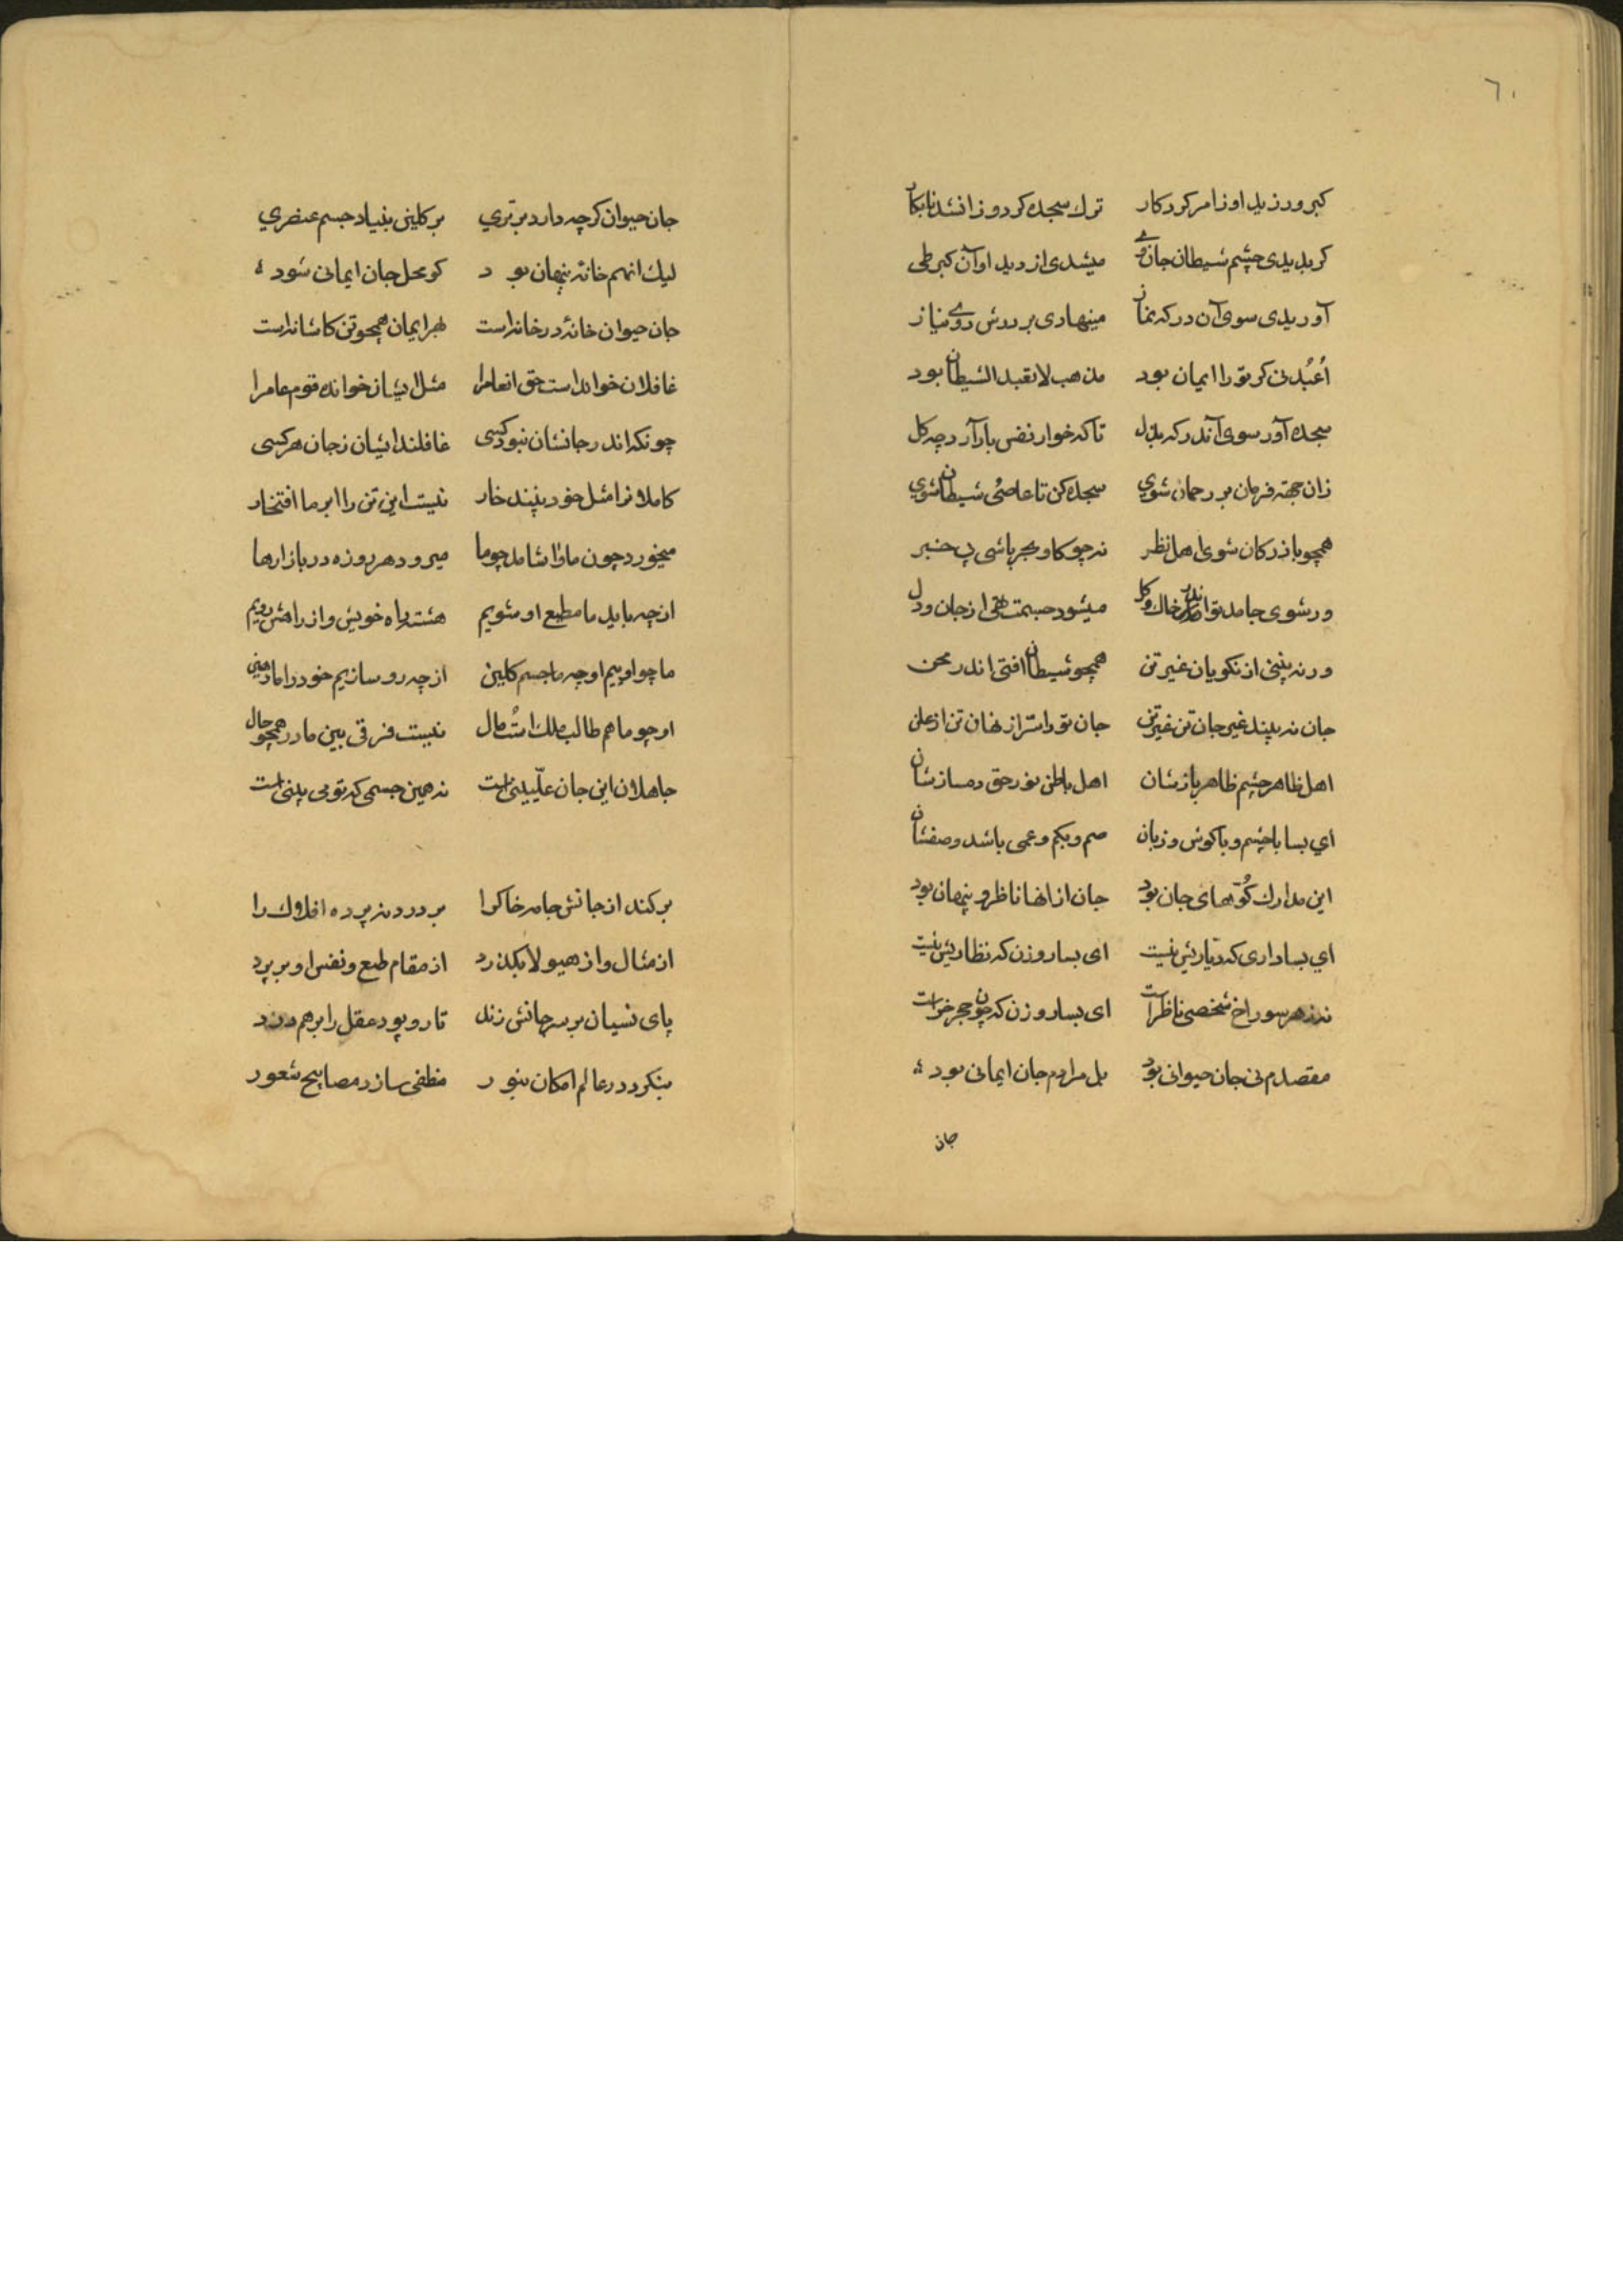 ٦٠
کبر ورزید او ز امر کردکار ترك سجده کرد و زانشد نابکار
کر بدیدی چشم شیطان جان وی میشدی از دید او آن کبر طی
آوریدی سوی آن درکه نماز مینهادی بر درش روی نیاز
اُعبُدنی کر تو را ایمان بود مذهب لاتعبد الشیطان بود
سجده آور سوی آندرکه بدل تا که خوار نفس بار آرد چه کل
زان جهته فرمان بر رحمان شوی سجده کن تا عاصی شیطان شوی
همچو بازرکان شوی اهل نظر نه چو کاو و خر باشی بی خبر
ور شوی جامد تو اندر خاك و کل میشود جسمت تهی از جان و دل
ور نه بینی از نکویان غیر تن همچو شیطان افتی اندر محن
جان نه بیند غیر جان تن غیر تن جان تو را سّر از نهان تن از علن
اهل ظاهر چشم ظاهر بازشان اهل باطن نور حق دمسازشان
ای بسا با چشم و با کوش و زبان صم و بکم و عمی باشد وصفشان
این مدارك کُوّههای جان بود جان از انها ناظر و پنهان بود
ای بسا داری که دیاریش نیست ای بسا روزن که نظاریش نیست
نه ز هر سوراخ شخصی ناظر است ای بسا روزن که چون حجر خر است
مقصدم نی جان حیوانی بود بل مرادم جان ایمانی بود
جان
جان حیوان کرچه دارد برتری بر کلین بنیاد جسم عنصری
لیك انهم خانه پنهان بود کو محل جان ایمانی شود
جان حیوان خانهٔ در خانه است بهر ایمان همچو تن کاشانه است
غافلان خوانده است حق انعام را مثل ایشان خوانده قوم عام را
چونکه اندر جانشان نبود کسی غافلند ایشان ز جان هر کسی
کاملانرا مثل خود بینند خار نیست این تن را ابر ما افتخار
میخورد چون ما و آشامد چو ما میرود هر روزه در بازارها
از چه باید ما مطیع او شویم هشته راه خویش و از راهش رویم
ما چو اوییم او چه ما جسم کلین از چه رو سازیم خود را ما رهین
او چو ما هم طالب ملك است و مال نیست فرقی بین ما در همچو حال
جاهلان این جان علّیینی است نه همین جسمی که تو می بینی است
برکند از جانش جامه خاك را بر درد نه پرده افلاك را
از مثال و از هیولا بکذرد از مقام طبع و نفس او بر پرد
پای نسیان بر سر جانش زند تار و پود عقل را برهم درد
بنکرد در عالم امکان بنور منطفی سازد مصابیح شعور